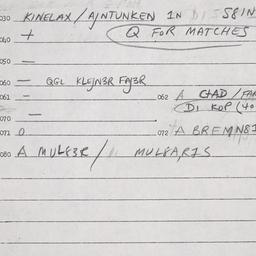 030 KINELAX / AJNTUNKEN IN DI 581N
040 + Q FOR MATCHES
050 —
060 — QGL KLEJN3R FAJ3R
061 – 062 A GAD / FAR
DI KOP (40
070 —
071 0 072 A BREMN81
080 A MULF3R / MULFARIS